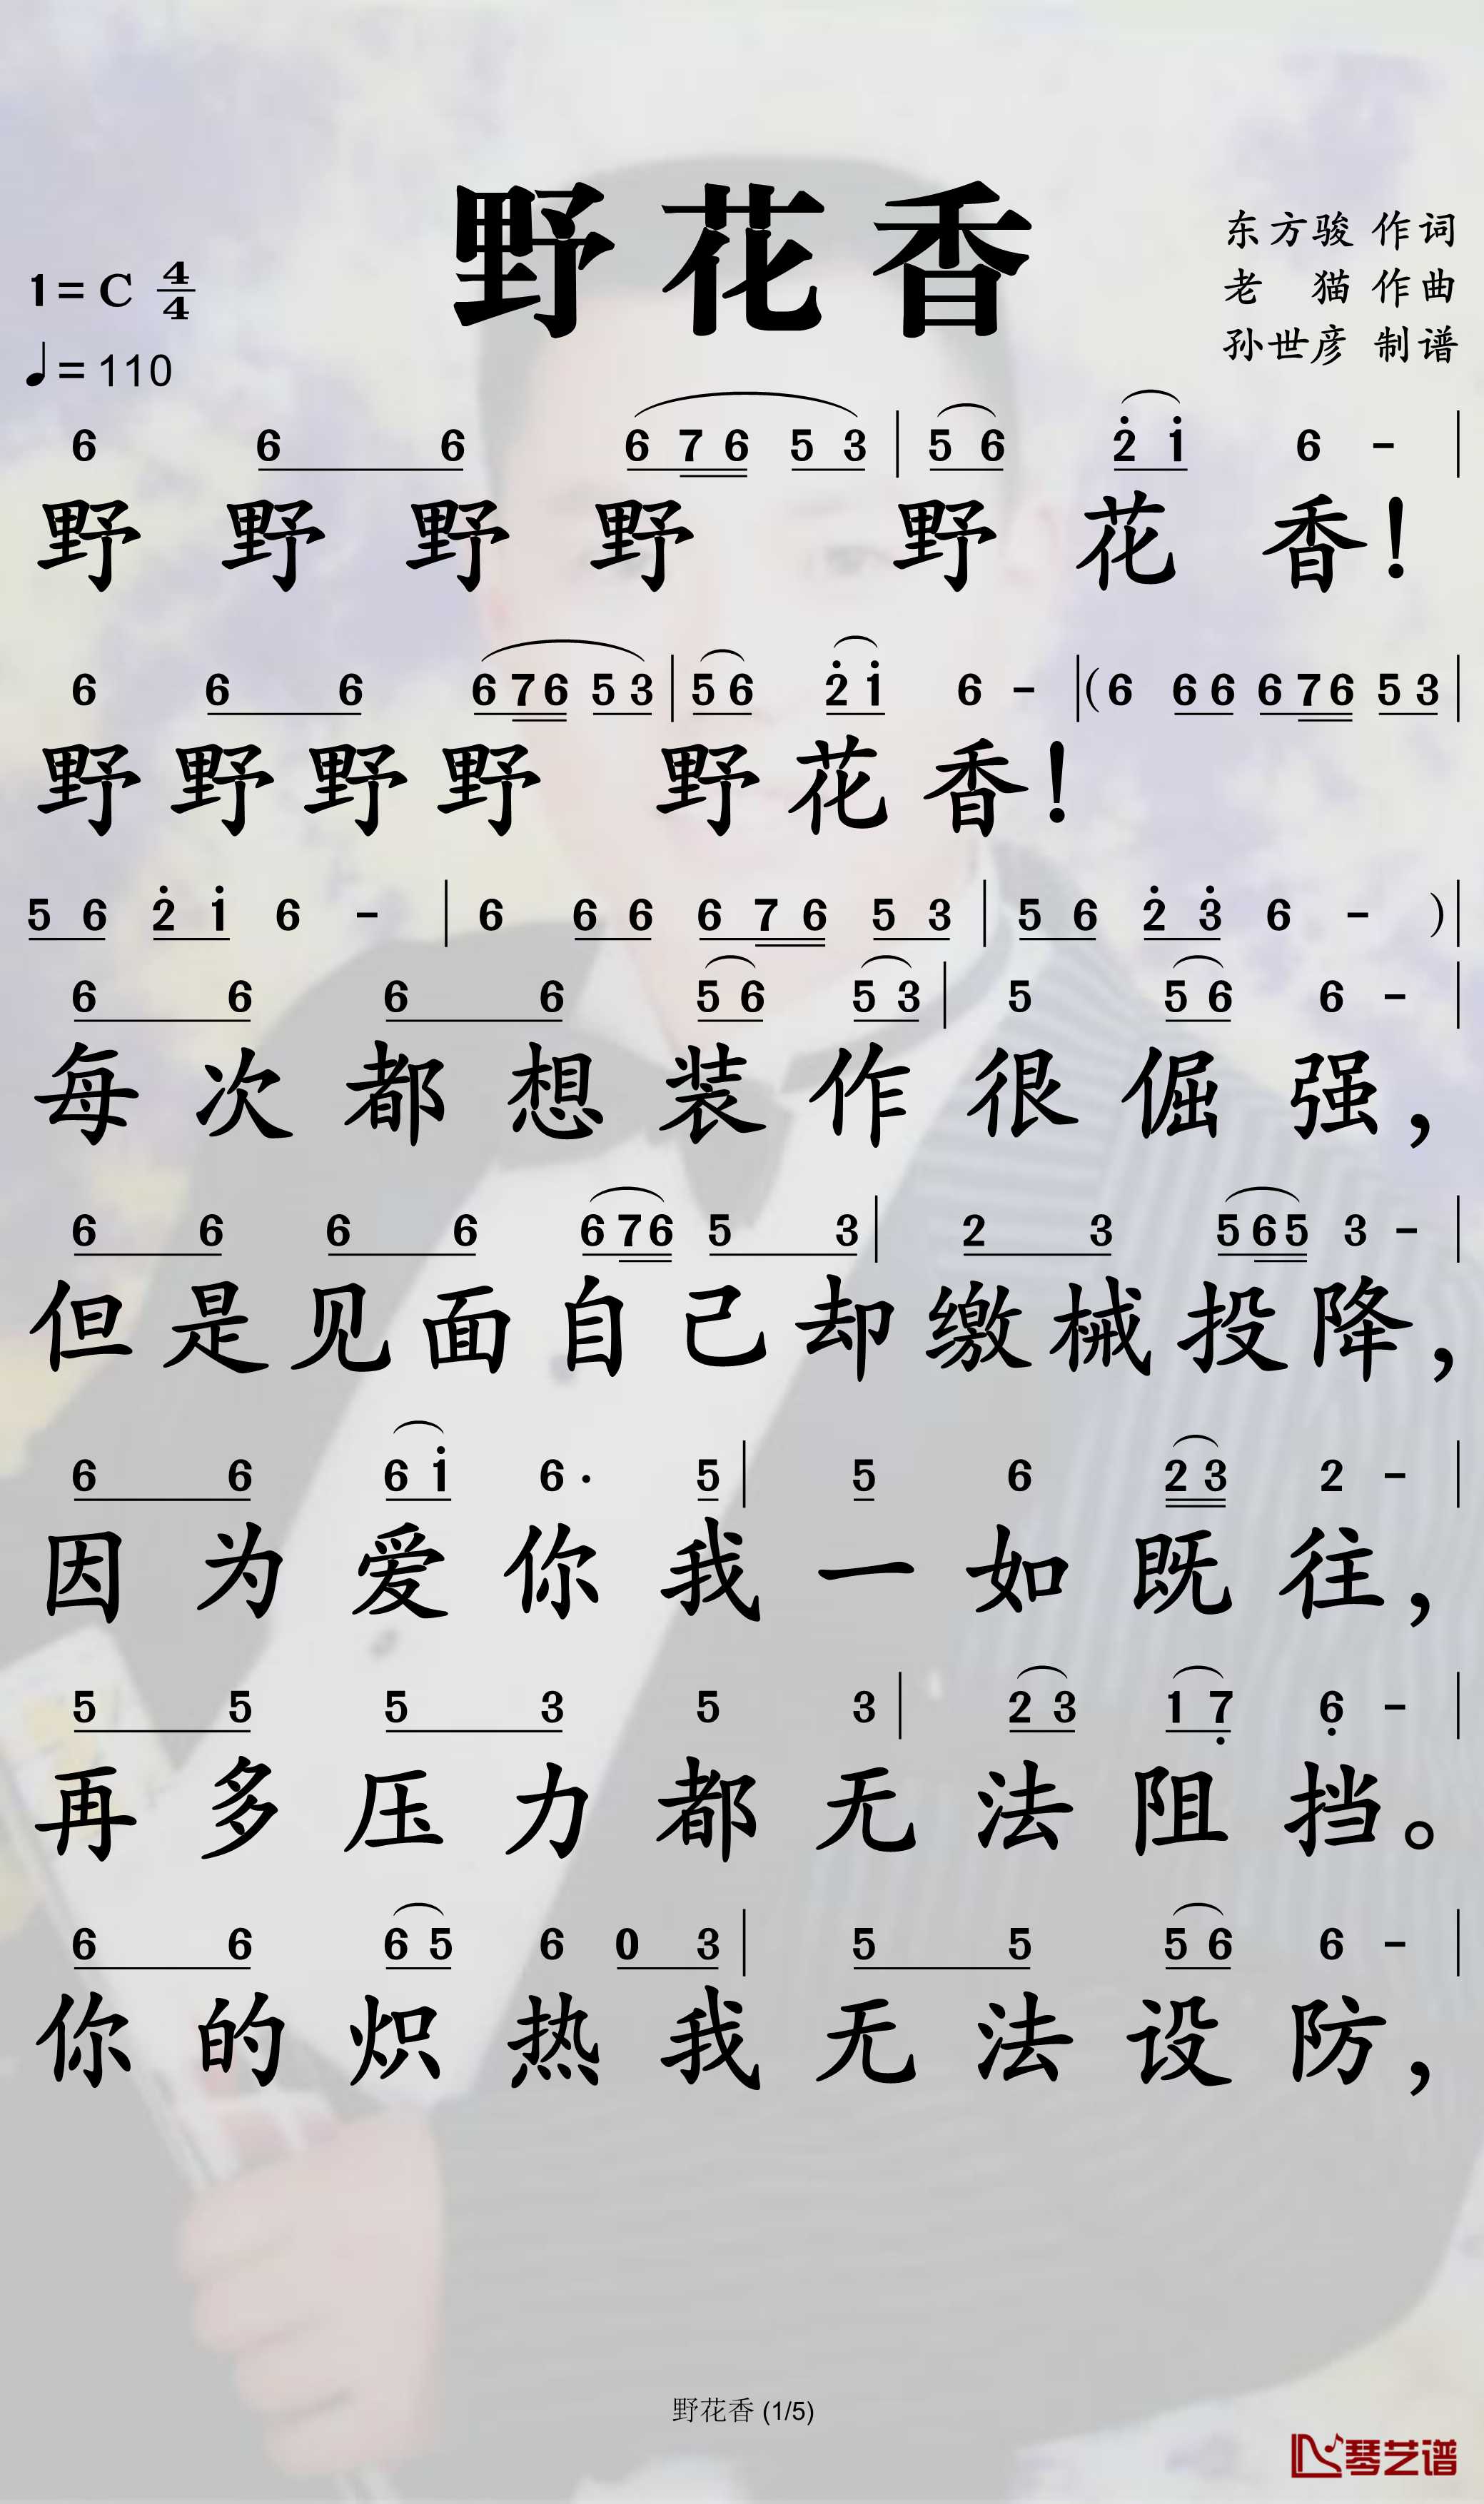 野花香
东方骏 作词
1=C 4/4
老 猫 作曲
孙世彦 制谱
♩=110
6 6 6 6 7 6 5 3 | 5 6 2̇ 1̇ 6 - |
野 野 野 野 野 花 香！
6 6 6 6 7 6 5 3 | 5 6 2̇ 1̇ 6 - | (6 6 6 6 7 6 5 3 |
野 野 野 野 野 花 香！
5 6 2̇ 1̇ 6 - | 6 6 6 6 7 6 5 3 | 5 6 2̇ 3̇ 6 - ) |
6 6 6 6 5 6 5 3 | 5 5 6 6 - |
每 次 都 想 装 作 很 倔 强，
6 6 6 6 6 7 6 5 3 | 2 3 5 6 5 3 - |
但 是 见 面 自 己 却 缴 械 投 降，
6 6 6 1̇ 6 · 5 | 5 6 2 3 2 - |
因 为 爱 你 我 一 如 既 往，
5 5 5 3 5 3 | 2 3 1 7̣ 6̣ - |
再 多 压 力 都 无 法 阻 挡。
6 6 6 5 6 0 3 | 5 5 5 6 6 - |
你 的 炽 热 我 无 法 设 防，
野花香 (1/5)
琴艺谱